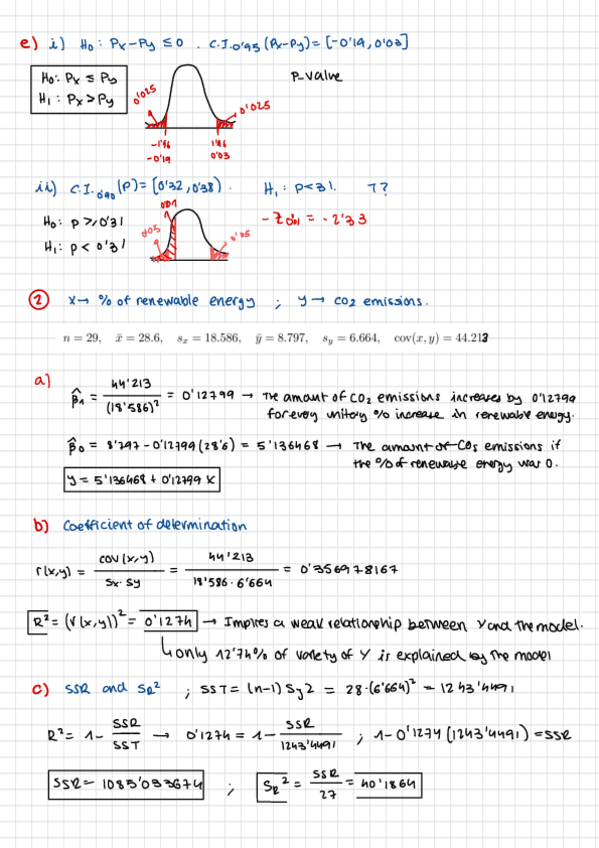 e) i) H₀: Px-Py ≤ 0 . C.I.0'95 (Px-Py) = [-0'19, 0'03]
H₀: Px ≤ Py
H₁: Px > Py
P-value
0'025
0'025
-1'96
1'96
-0'19
0'03
ii) C.I.0'90 (P) = [0'32, 0'38). H₁: p<31. T?
0'01
H₀: p ≥ 0'31
H₁: p < 0'31
0'05
0'05
-Z0'01 = -2'33
② X→ % of renewable energy ; y → CO2 emissions.
n = 29, x̄ = 28.6, sx = 18.586, ȳ = 8.797, sy = 6.664, cov(x, y) = 44.213
a)
β̂₁ = 44'213 / (18'586)² = 0'12799 → The amount of CO₂ emissions increases by 0'12799
for every unitary % increase in renewable energy.
β̂₀ = 8'797 - 0'12799 (28'6) = 5'136468 → The amount of COs emissions if
the % of renewable energy was 0.
y = 5'136468 + 0'12799 x
b) Coefficient of determination
r(x,y) = cov(x,y) / Sx·Sy = 44'213 / 18'586·6'664 = 0'356978167
R² = (r(x,y))² = 0'1274 → Implies a weak relationship between Y and the model.
↳ only 12'74% of variety of Y is explained by the model
c) SSR and SR² ; SST = (n-1) Sy2 = 28·(6'664)² = 1243'4491
R² = 1 - SSR / SST → 0'1274 = 1 - SSR / 1243'4491 ; 1-0'1274 (1243'4491) = SSR
SSR = 1085'033674 ; SR² = SSR / 27 = 40'1864